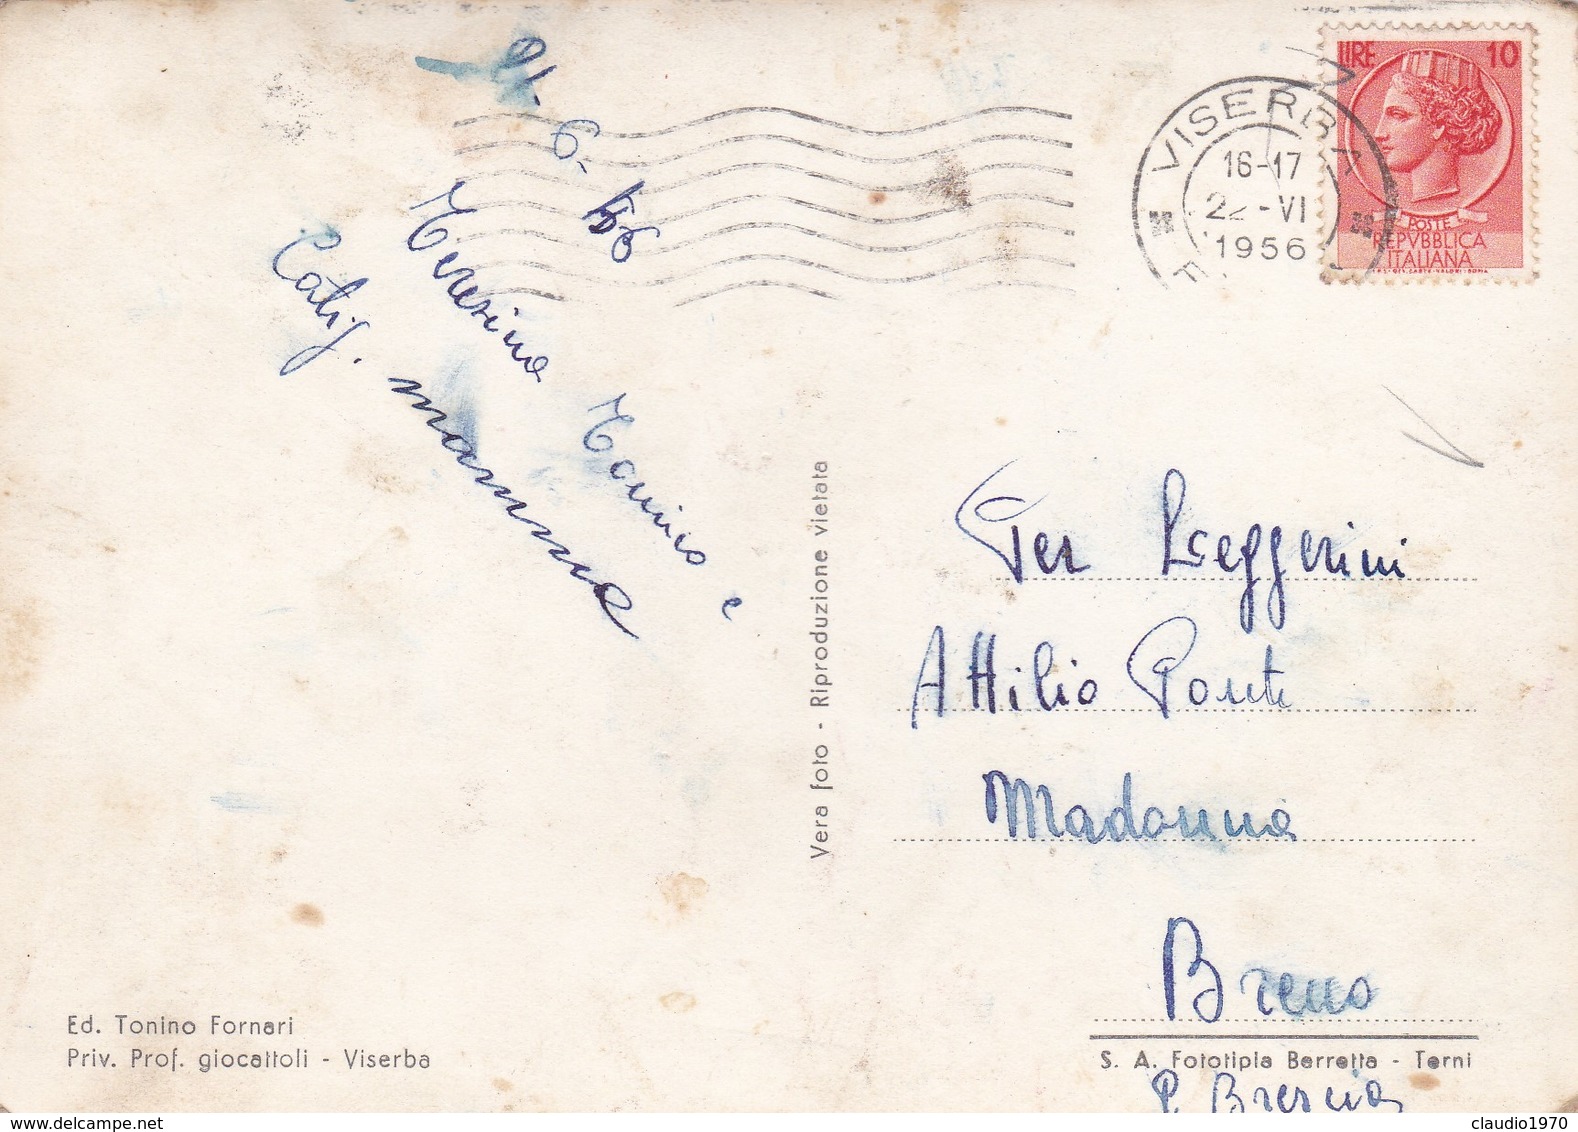 21-6-56
Teresina Tonino e
Catij. mamma
LIRE 10
POSTE
REPVBBLICA
ITALIANA
VISERBA
16-17
22-VI
1956
Vera foto - Riproduzione vietata
Per Leggerini
Attilio Ponte
Madonna
Breno
P. Brescia
Ed. Tonino Fornari
Priv. Prof. giocattoli - Viserba
S. A. Fototipia Berretta - Terni
claudio1970